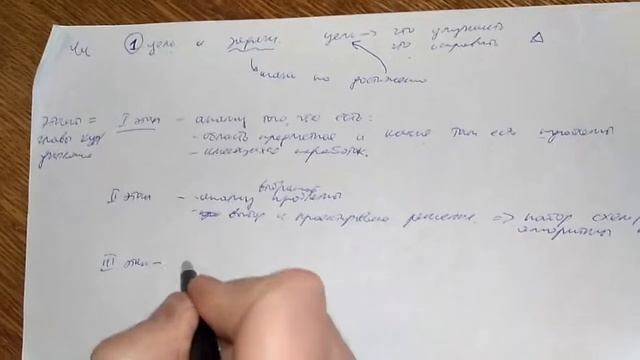 ① цели и задачи. цель → что улучшить
что исправить
шаги по достижению
этапы = I этап - анализ того, что есть:
главы - область предметная и какие там есть проблемы
- имеющихся наработок.
выбранной
II этап - анализ проблемы
- выбор и проектирование решения => набор схем,
алгоритмы
III этап -